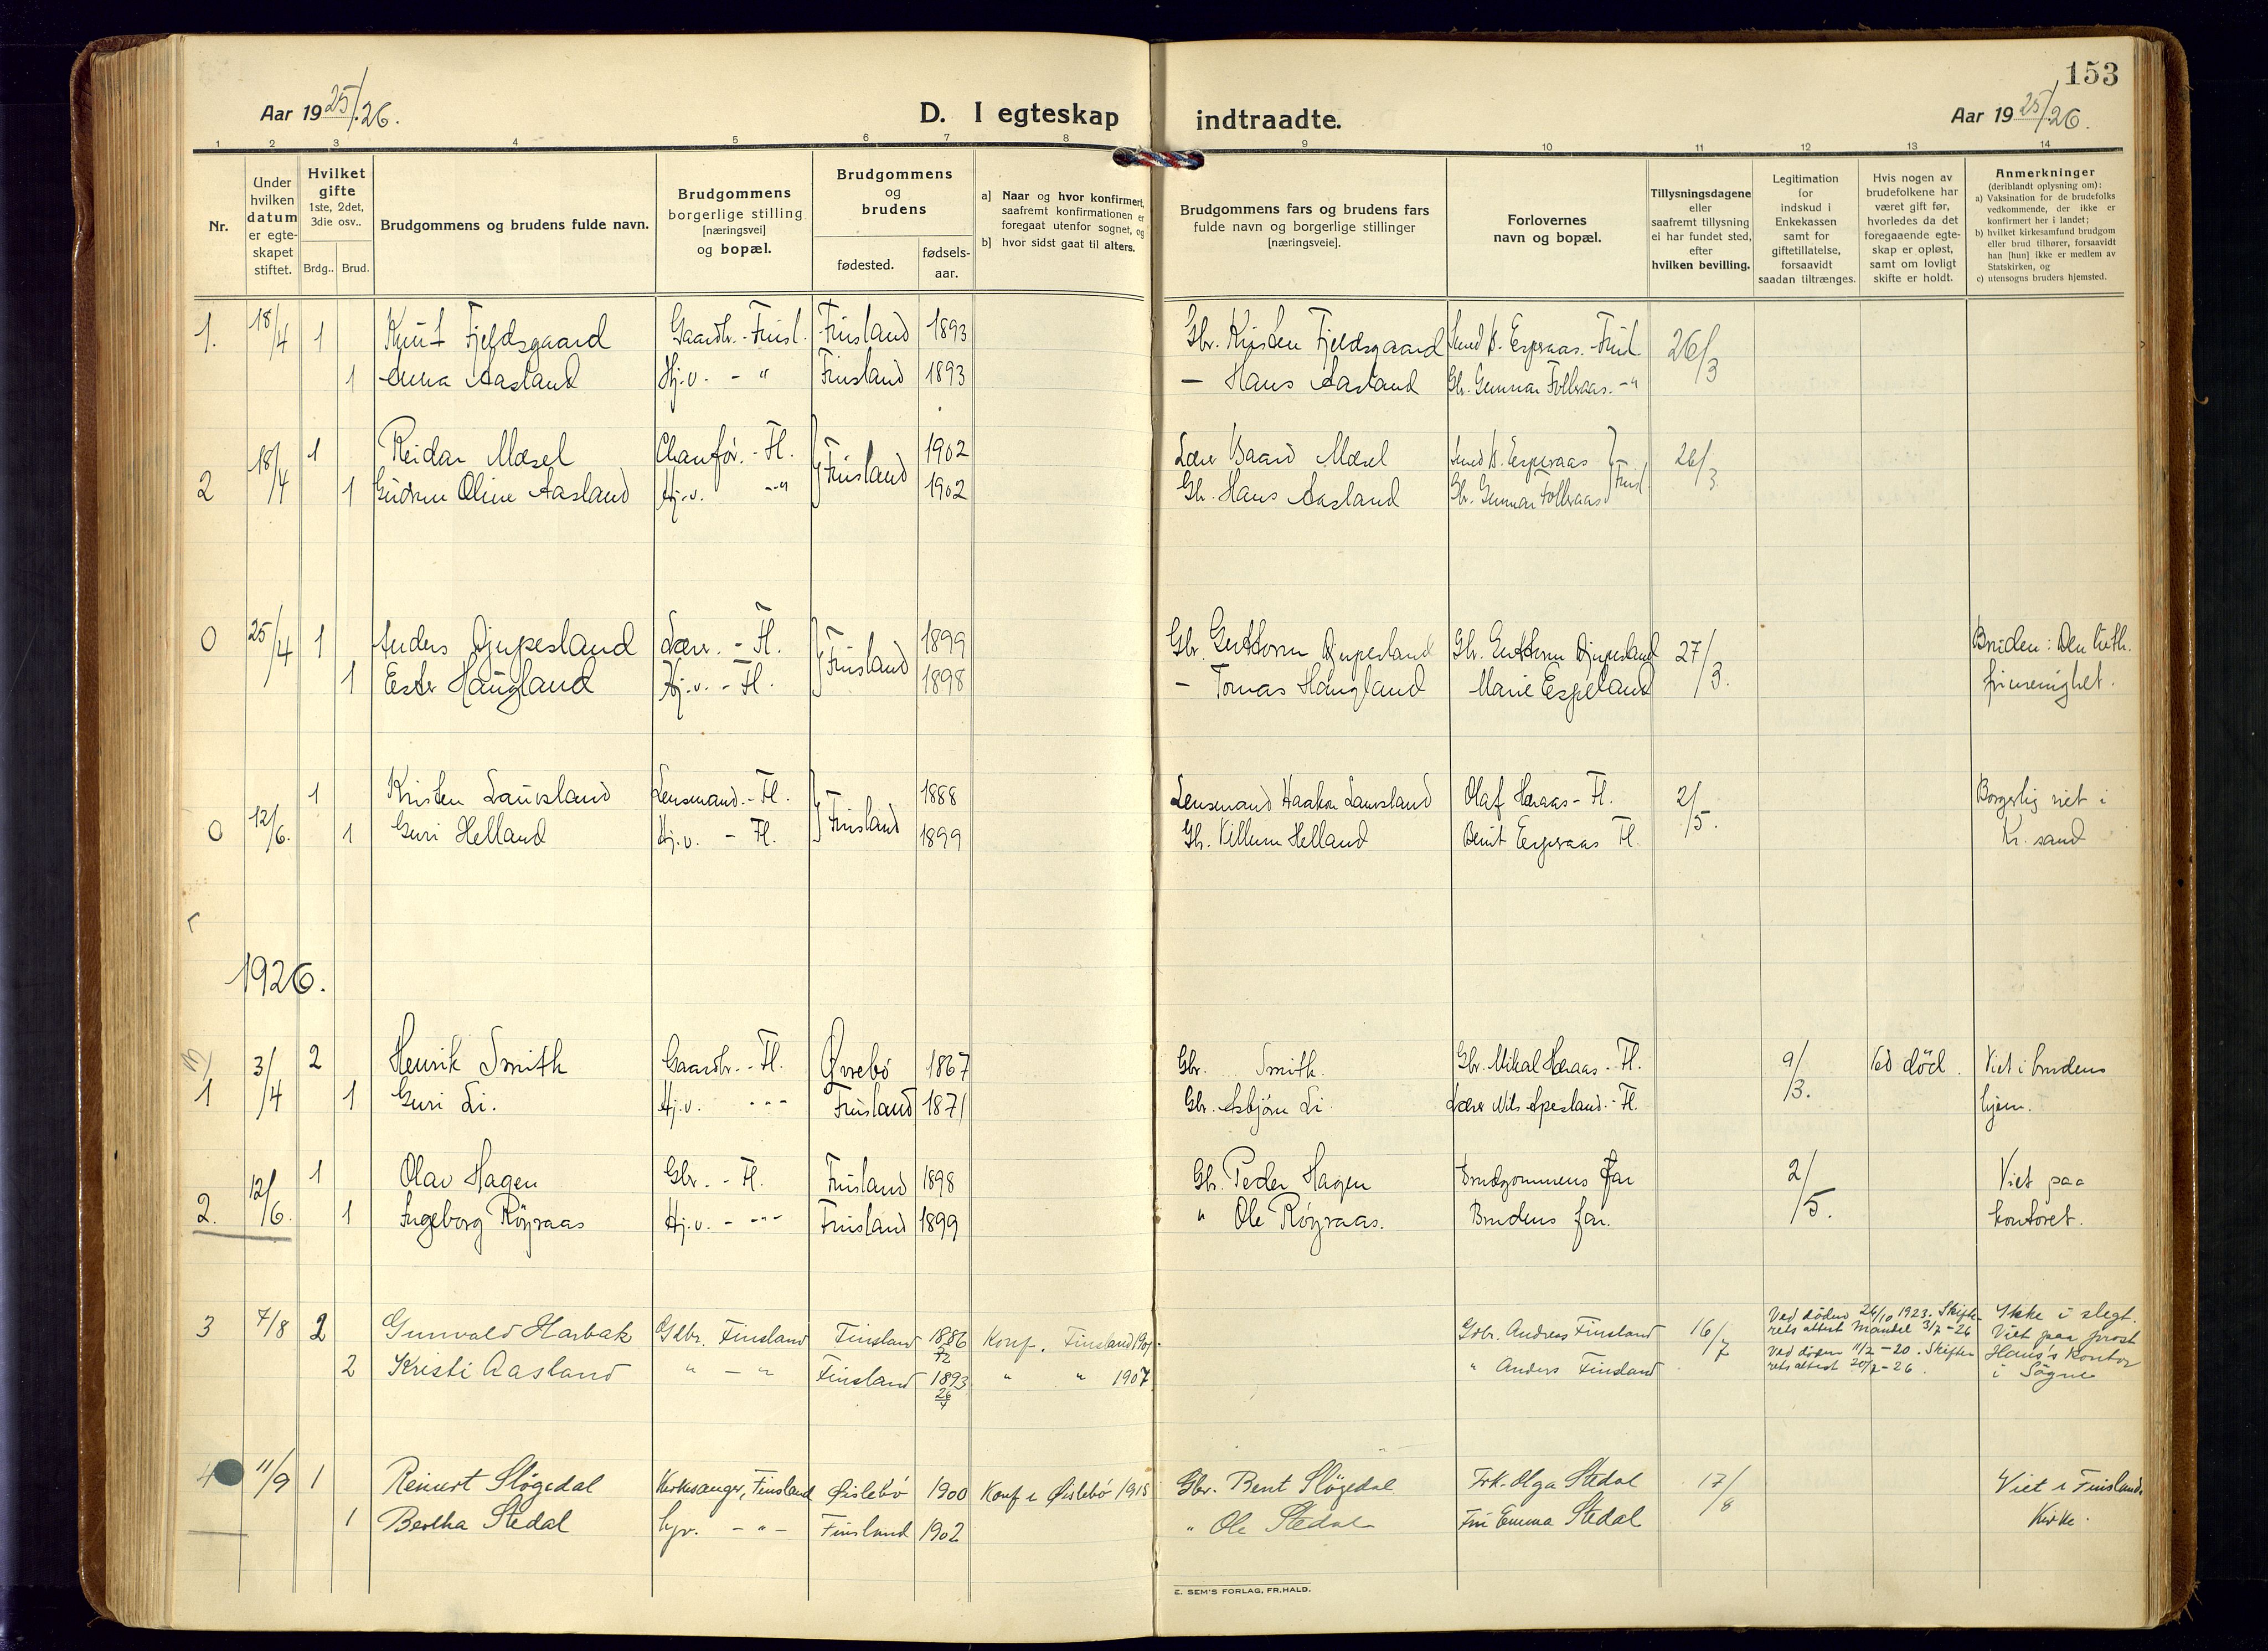 153
Aar 1925/26.
D. I egteskap indtraadte.
Aar 1925/26.
1 2 3 4 5 6 7 8 9 10 11 12 13 14
Nr.
Under hvilken datum er egte-skapet stiftet.
Hvilket gifte 1ste, 2det, 3die osv..
Brdg.. Brud.
Brudgommens og brudens fulde navn.
Brudgommens borgerlige stilling [næringsvei] og bopæl.
Brudgommens og brudens
fødested. fødsels-aar.
a] Naar og hvor konfirmert, saafremt konfirmationen er foregaat utenfor sognet, og
b] hvor sidst gaat til alters.
Brudgommens fars og brudens fars fulde navn og borgerlige stillinger [næringsveie].
Forlovernes navn og bopæl.
Tillysningsdagene eller saafremt tillysning ei har fundet sted, efter hvilken bevilling.
Legitimation for indskud i Enkekassen samt for giftetillatelse, forsaavidt saadan tiltrænges.
Hvis nogen av brudefolkene har været gift før, hvorledes da det foregaaende egte-skap er opløst, samt om lovligt skifte er holdt.
Anmerkninger (deriblandt oplysning om):
a) Vaksination for de brudefolks vedkommende, der ikke er konfirmert her i landet;
b) hvilket kirkesamfund brudgom eller brud tilhører, forsaavidt han [hun] ikke er medlem av Statskirken, og
c) utensogns bruders hjemsted.
1. 18/4 1 Knut Fjeldsgaard Gaardbr. - Finsl. Finsland 1893 Gbr. Kristen Fjeldsgaard Espraas. - Finsl. 26/3
1 Anna Aasland Hj.v. - " Finsland 1893 - Hans Aasland Gbr. Gunnar Follraas. - "
2 18/4 1 Reidar Mæsel Chaufør. - Fl. Finsland 1902 Lær. Baard Mæsel Espraas Finsl. 26/3
1 Gudrun Oline Aasland Hj.v. - " 1902 Gb. Hans Aasland Gbr. Gunnar Follraas
0 25/4 1 Anders Djupesland Lær. - Fl. Finsland 1899 Gbr. Guttorm Djupesland Gbr. Guttorm Djupesland 27/3. Bruden: Den luth.
1 Ester Haugland Hj.v. - Fl. 1898 - Tomas Haugland Marie Espeland frimenighet.
0 12/6. 1 Kristen Lauvsland Lensmand. - Fl. Finsland 1888 Lensmand Haakon Lauvsland Olaf Heraas - Fl. 2/5. Borgerlig viet i
1 Guri Helland Hj.v. - Fl. 1899 Gb. Villum Helland Bernt Espraas Fl. Kr. sand
1926.
1 3/4 2 Henrik Smith Gaardbr. - Fl. Øvrebö 1867 Gbr. Smith. Gbr. Mikal Heraas. - Fl. 9/3. Ved död. Viet i brudens
1 Guri Li. Hj.v. - " - Finsland 1871 Gbr. Asbjörn Li. Lærer Nils Apesland. - Fl. hjem.
2. 12/6. 1 Olav Hagen Gbr. - Fl. Finsland 1898 Gbr. Peder Hagen Brudgommens far 2/5. Viet paa
1 Ingeborg Röyraas Hj.v. - " - Finsland 1899 " Ole Röyraas. Brudens far. kontoret.
3 7/8 2 Gunvald Harbak Gdbr. Finsland Finsland 1886 Konf. Finsland 1901. Gdbr. Andreas Finsland 16/7 Ved döden 26/10 1923. Skifterets attest Mandal 3/7-26 Ikke i slegt. Viet paa prost
2 Kristi Aasland " - " Finsland 1893 26/4 " " 1907 " Anders Finsland Ved döden 11/2-20. Skifterets attest 20/7-26. Hans's kontor i Sögne
4 11/9 1 Reinert Slögedal Kirkesanger, Finsland Øislebö 1900 Konf i Øislebö 1915 Gbr. Bent Slögedal Frk. Olga Stedal 17/8 Viet i Finsland.
1 Bertha Stedal hjv. - " - Finsland 1902 " Ole Stedal Fru Emma Stedal Kirke.
E. SEM'S FORLAG, FR.HALD.